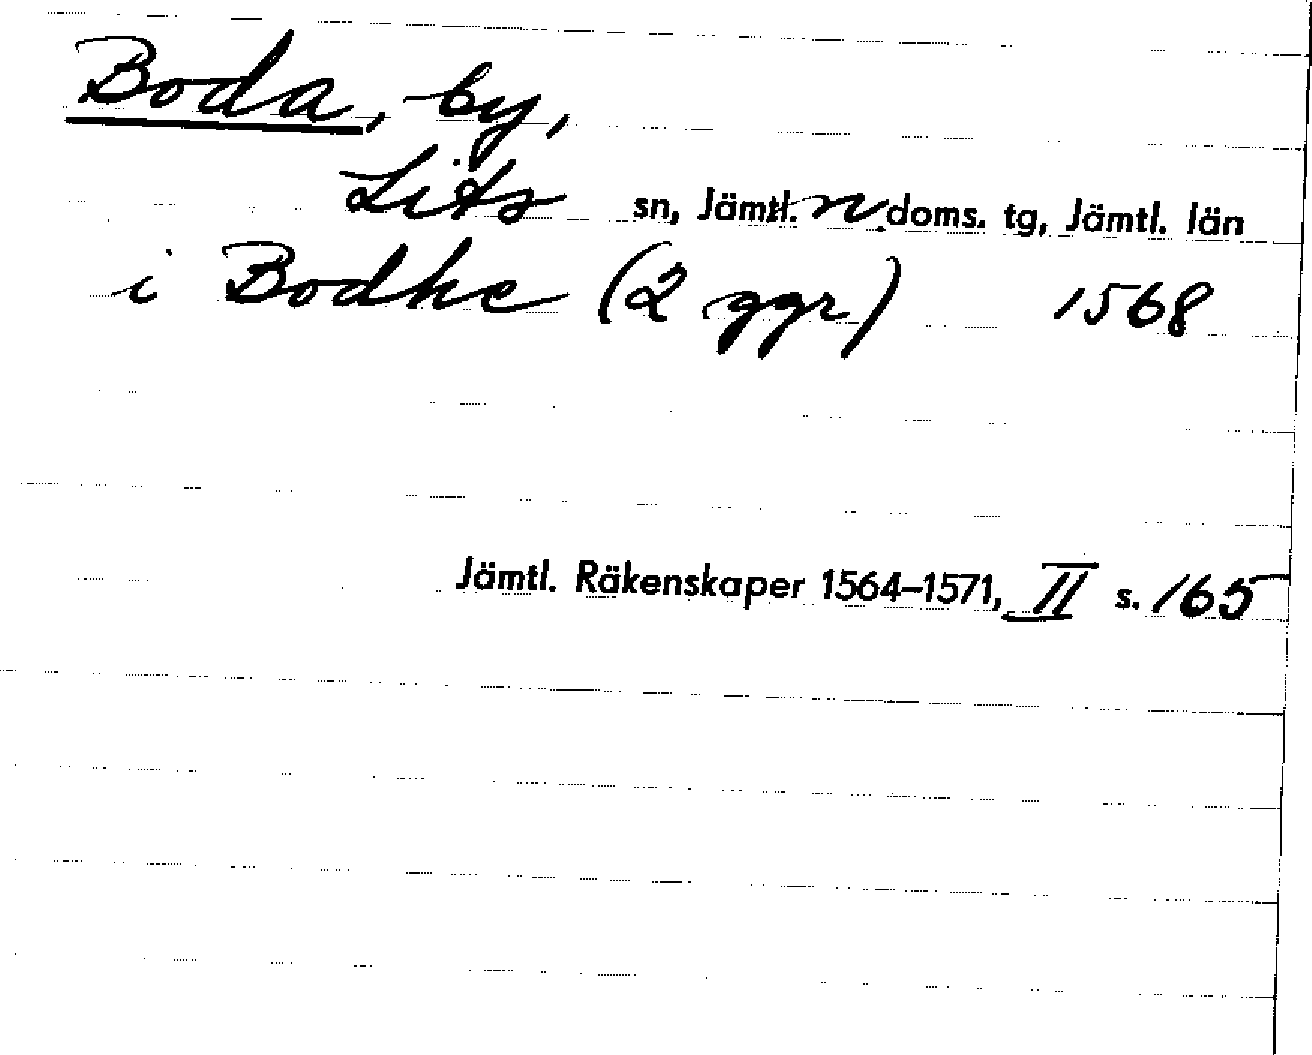 Boda, by,
Lits sn, Jämtl. n. doms. tg, Jämtl. län
i Bodhe (2 ggr) 1568
Jämtl. Räkenskaper 1564–1571, II s. 165